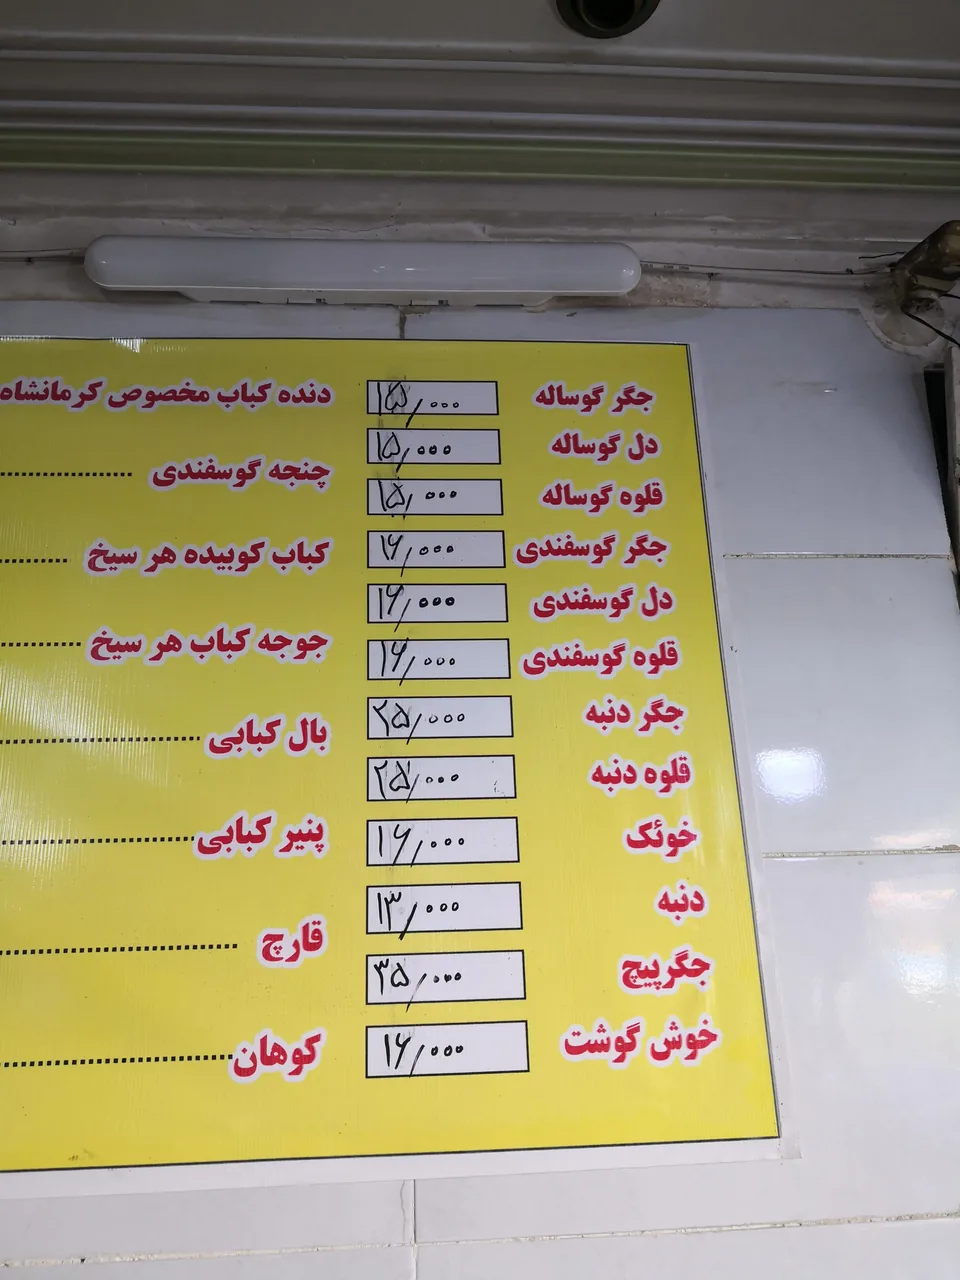 جگر گوساله ۱۵/۰۰۰
دل گوساله ۱۵/۰۰۰
قلوه گوساله ۱۵/۰۰۰
جگر گوسفندی ۱۶/۰۰۰
دل گوسفندی ۱۶/۰۰۰
قلوه گوسفندی ۱۶/۰۰۰
جگر دنبه ۲۵/۰۰۰
قلوه دنبه ۲۵/۰۰۰
خوئک ۱۶/۰۰۰
دنبه ۱۳/۰۰۰
جگرپیچ ۳۵/۰۰۰
خوش گوشت ۱۶/۰۰۰
دنده کباب مخصوص کرمانشاه
چنجه گوسفندی
کباب کوبیده هر سیخ
جوجه کباب هر سیخ
بال کبابی
پنیر کبابی
قارچ
کوهان